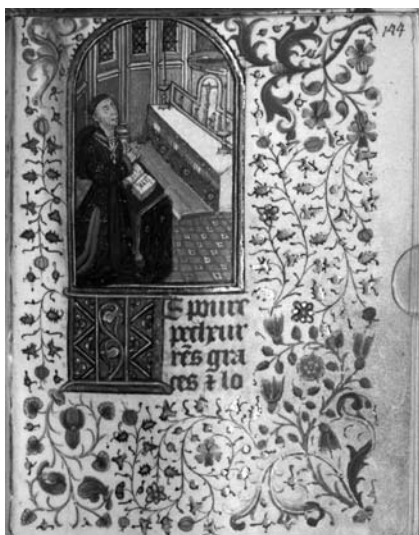 144
E poure
pecheur
rēs gra
ces ⁊ lo